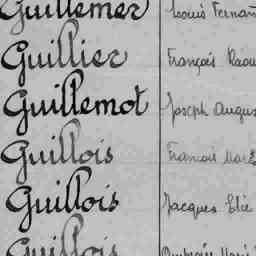 Guillemer Louis Fernan
Guillier François Raou
Guillemot Joseph Augus
Guillois Francois Mar
Guillois Jacques Elie
Guillois Ambroise